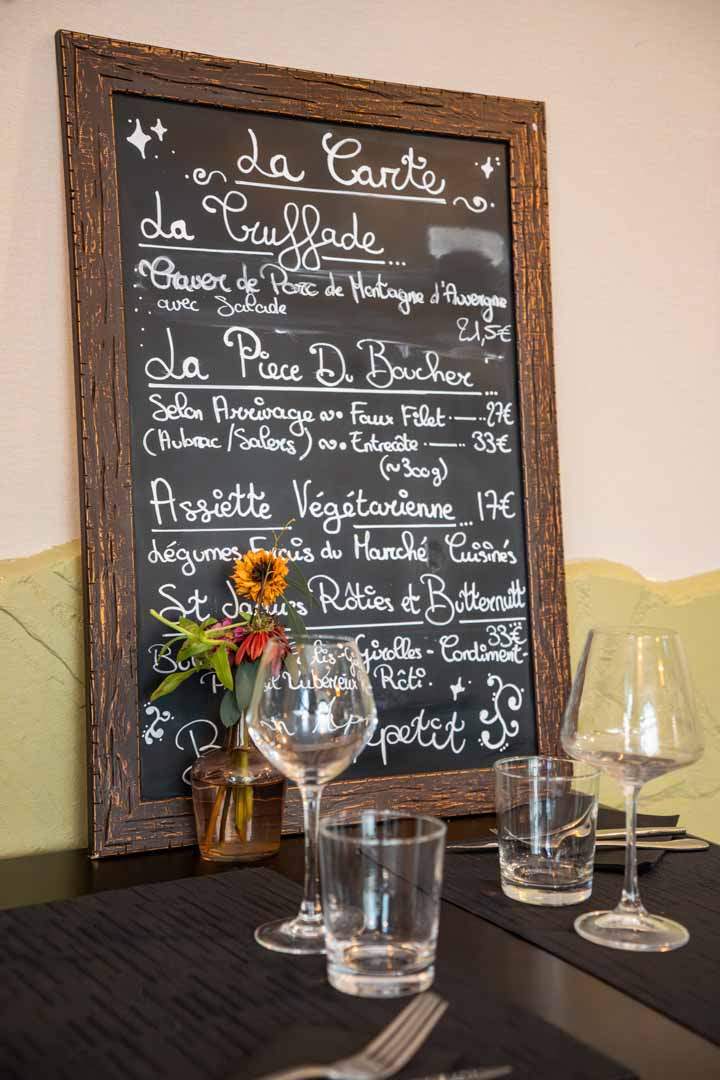 La Carte
La Truffade...
Traver de Porc de Montagne d'Auvergne
avec Salade
21,5€
La Piece Du Boucher...
Selon Arrivage ~• Faux Filet — 27€
(Aubrac/Salers) ~• Entrecôte — 33€
(~300g)
Assiette Végétarienne... 17€
Légumes du Marché Cuisinés
St Jacques Rôties et Butternut
33€
Girolles - Condiment -
Rôti.
Bon Appetit